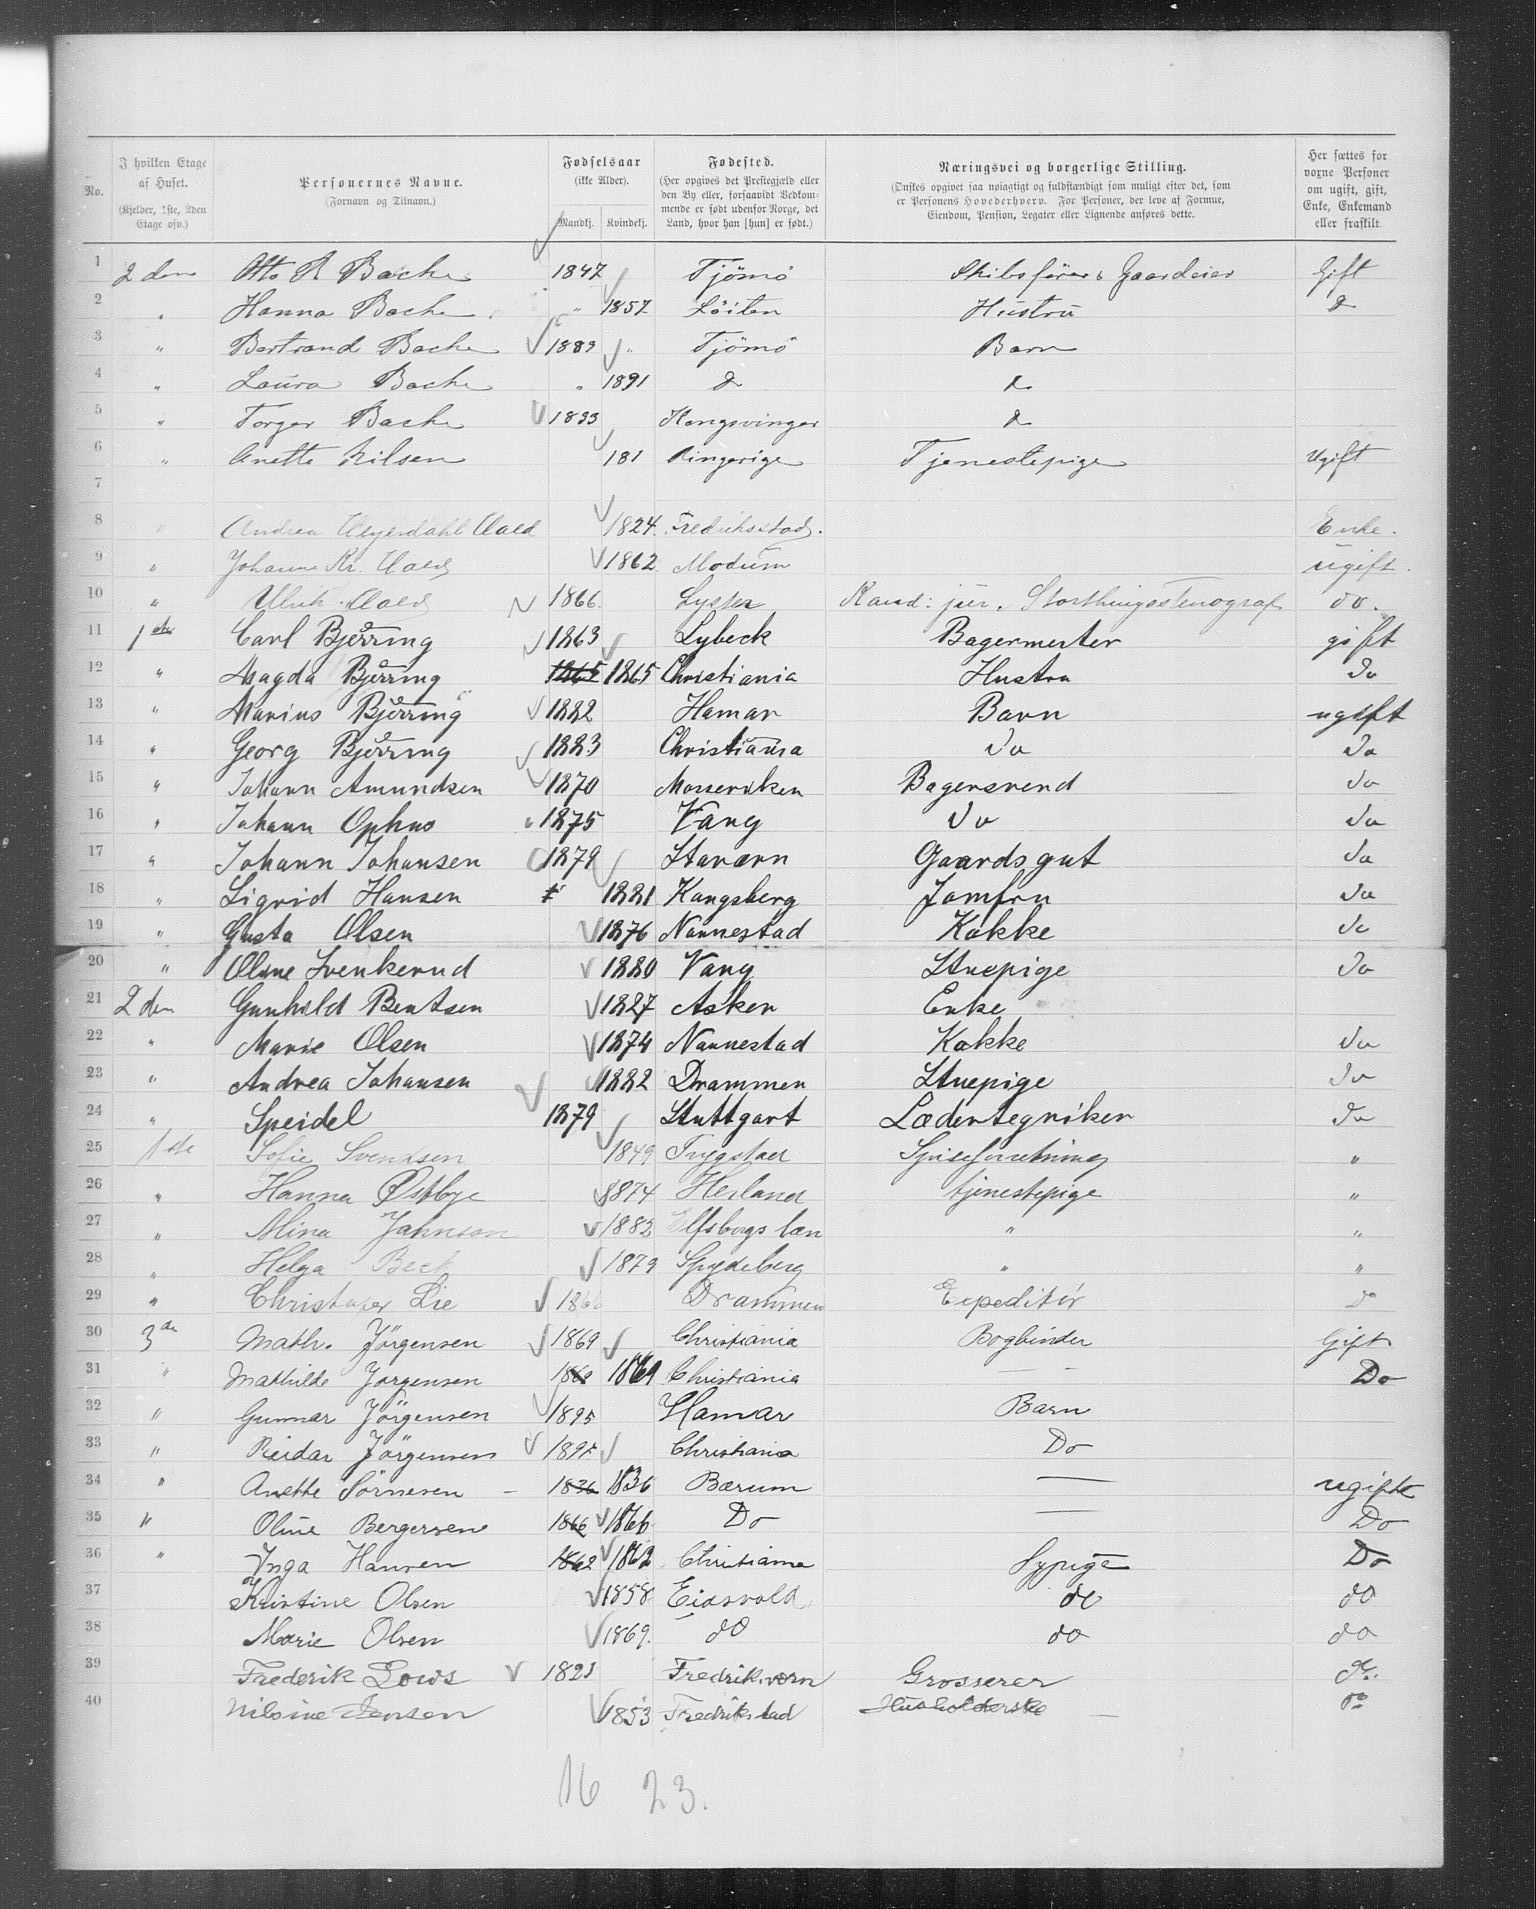 No. | I hvilken Etage af Huset. (Kjelder, 1ste, 2den Etage osv.) | Personernes Navne. (Fornavn og Tilnavn.) | Fødselsaar (ikke Alder). Mandkj. Kvindekj. | Fødested. (Her opgives det Prestegjæld eller den By eller, forsaavidt Vedkommende er født udenfor Norge, det Land, hvor han [hun] er født.) | Næringsvei og borgerlige Stilling. (Ønskes opgivet saa nøiagtigt og fuldstændigt som muligt efter det, som er Personens Hovederhverv. For Personer, der leve af Formue, Eiendom, Pension, Legater eller Lignende anføres dette.) | Her sættes for voxne Personer om ugift, gift, Enke, Enkemand eller fraskilt.
1 2den Otto R Bache 1847 Tjömö Skibsförer & Gaardeier Gift
2 " Hanna Bache " 1857 Löiten Hustru d
3 " Bertrand Bache 1889 " Tjömö Barn
4 " Laura Bache " 1891 d d
5 " Torger Bache 1893 Kongsvinger d
6 " Anette Nilsen 181 Ringerige Tjenestepige Ugift
7
8 " Andrea Heyerdahl Aald 1824 Fredriksstad. Enke.
9 " Johanne Kr. Aald 1862 Modum ugift.
10 " Ulrik Aald 1866. Lyster Kand: jur. Storthingsstenograf do.
11 1ste Carl Bjerring 1863 Lybeck Bagermester gift
12 " Magda Bjerring 1865 1865 Christiania Hustru do
13 " Marius Bjerring 1882 Hamar Barn ugift
14 " Georg Bjerring 1883 Christiania do do
15 " Johann Amundsen 1870 Mosserviken Bagersvend do
16 " Johann Ophus 1875 Vang do do
17 " Johann Johansen 1879 Stavern Gaardsgut do
18 " Sigrid Hansen 1881 Kongsberg Jomfru do
19 " Gusta Olsen 1876 Nannestad Kokke do
20 " Oline Svenkerud 1880 Vang Stuepige do
21 2den Gunhild Bentsen 1827 Asker Enke
22 " Marie Olsen 1874 Nannestad Kokke do
23 " Andrea Johansen 1882 Drammen Stuepige do
24 " Speidel 1879 Stuttgart Lædertegniker do
25 1ste Sofie Svendsen 1849 Trygstad Spiseforretning "
26 " Hanna Østbye 1874 Herland tjenestepige "
27 " Alina Jahnson 1882 Elfsborgs læn " "
28 " Helga Beck 1879 Spydeberg " "
29 " Christofer Lie 186 Drammen Expeditör do
30 3de Math. Jörgensen 1869 Christiania Bogbinder Gift
31 " Mathilde Jörgensen 1869 1869 Christiania — Do
32 " Gunnar Jörgensen 1895 Hamar Barn
33 " Reidar Jörgensen 189 Christiania Do
34 " Anette Sörnesen 1836 1836 Bærum — ugifte
35 " Oline Bergersen 1866 1866 Do — Do
36 " Inga Hansen 1862 1862 Christiania Sypige Do
37 Kristine Olsen 1858 Eidsvold do do
38 Marie Olsen 1869. do do do
39 Frederik Lows 1821 Fredriksværn Grosserer do.
40 Nilsine Jensen 1853 Fredrikstad Husholderske do
16 23.